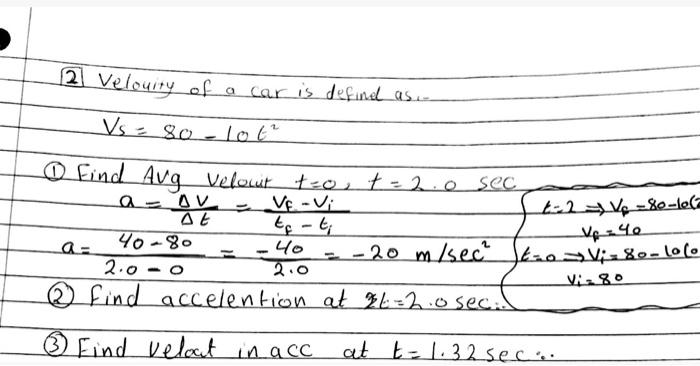 2 Velouity of a car is defind as:-
Vs = 80 - 10t²
① Find Avg Velouit t=0, t = 2.0 sec
a = ΔV / Δt = Vf - Vi / tf - ti
t=2 ⇒ Vf = 80-10(2
Vf = 40
a = 40 - 80 / 2.0 - 0 = -40 / 2.0 = -20 m/sec²
t=0 ⇒ Vi = 80 - 10(0
Vi = 80
② find accelention at t=2.0 sec:.
③ Find Veloct in acc at t = 1.32 sec:.